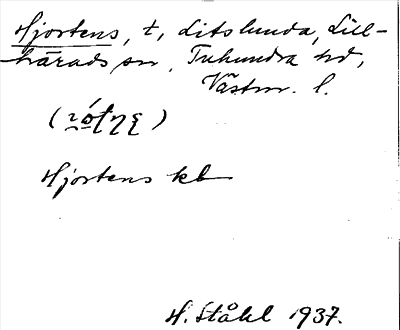 Hjortens, t, Litslunda, Lill-
härads sn, Tuhundra hd,
Västm. l.
Hjortens kb
H. Ståhl 1937.